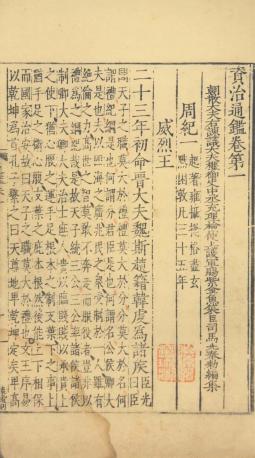 資治通鑑卷第一
朝散大夫右諫議大夫權御史中丞充理檢使上護軍賜紫金魚袋臣司馬光奉勑編集
周紀一 起著雍攝提格盡玄黓困敦凡三十五年
威烈王
二十三年初命晉大夫魏斯趙籍韓虔爲諸侯臣光曰臣
聞天子之職莫大於禮禮莫大於分分莫大於名何
謂禮紀綱是也何謂分君臣是也何謂名公侯卿大
夫是也夫以四海之廣兆民之衆受制於一人雖有
絶倫之力高世之智莫敢不奔走而服役者豈非以
禮爲之綱紀哉是故天子統三公三公率諸侯諸侯
制卿大夫卿大夫治士庶人貴以臨賤賤以承貴上
之使下猶心腹之運手足根本之制支葉下之事上
猶手足之衛心腹支葉之庇本根然後能上下相保
而國家治安故曰天子之職莫大於禮也文王序易
以乾坤爲首孔子繫之曰天尊地卑乾坤定矣卑高